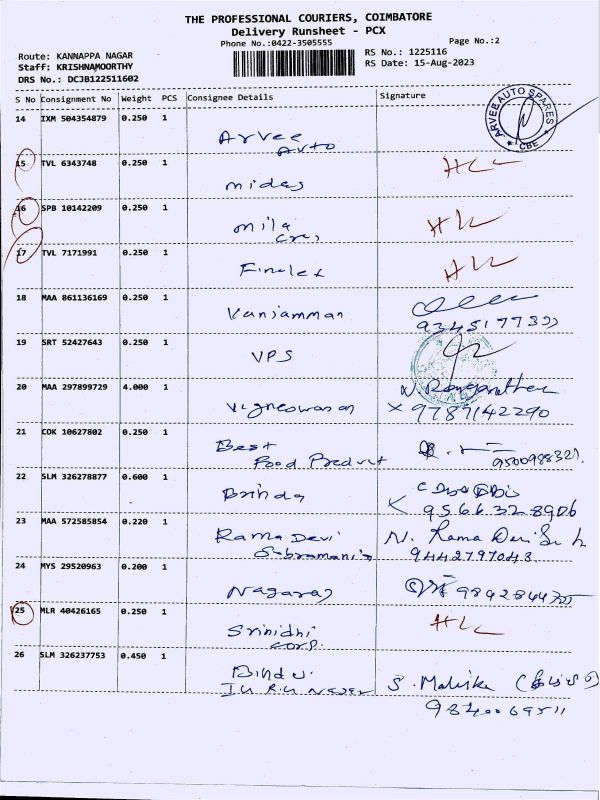 THE PROFESSIONAL COURIERS, COIMBATORE
Delivery Runsheet - PCX
Phone No.:0422-3505555
Page No.:2
Route: KANNAPPA NAGAR
RS No.: 1225116
Staff: KRISHNAMOORTHY
RS Date: 15-Aug-2023
DRS No.: DCJB122511602
S No Consignment No Weight PCS Consignee Details Signature
14 IXM 504354879 0.250 1
Arvee
Auto
ARVEE AUTO SPARES
CBE
15 TVL 6343748 0.250 1
midas
16 SPB 10142209 0.250 1
mila
17 TVL 7171991 0.250 1
18 MAA 861136169 0.250 1
Vaniamman
19 SRT 52427643 0.250 1
VPS
20 MAA 297899729 4.000 1
Vigneswaran
x 9787142290
21 COK 10627802 0.250 1
Best
Food Product
9500988321.
22 SLM 326278877 0.600 1
Brinda
9566328906
23 MAA 572585854 0.220 1
Rama Devi
N. Rama Devi
9442797043
24 MYS 29520963 0.200 1
Nagaraj
25 MLR 40426165 0.250 1
Srinidhi
Corp.
26 SLM 326237753 0.450 1
Bindu